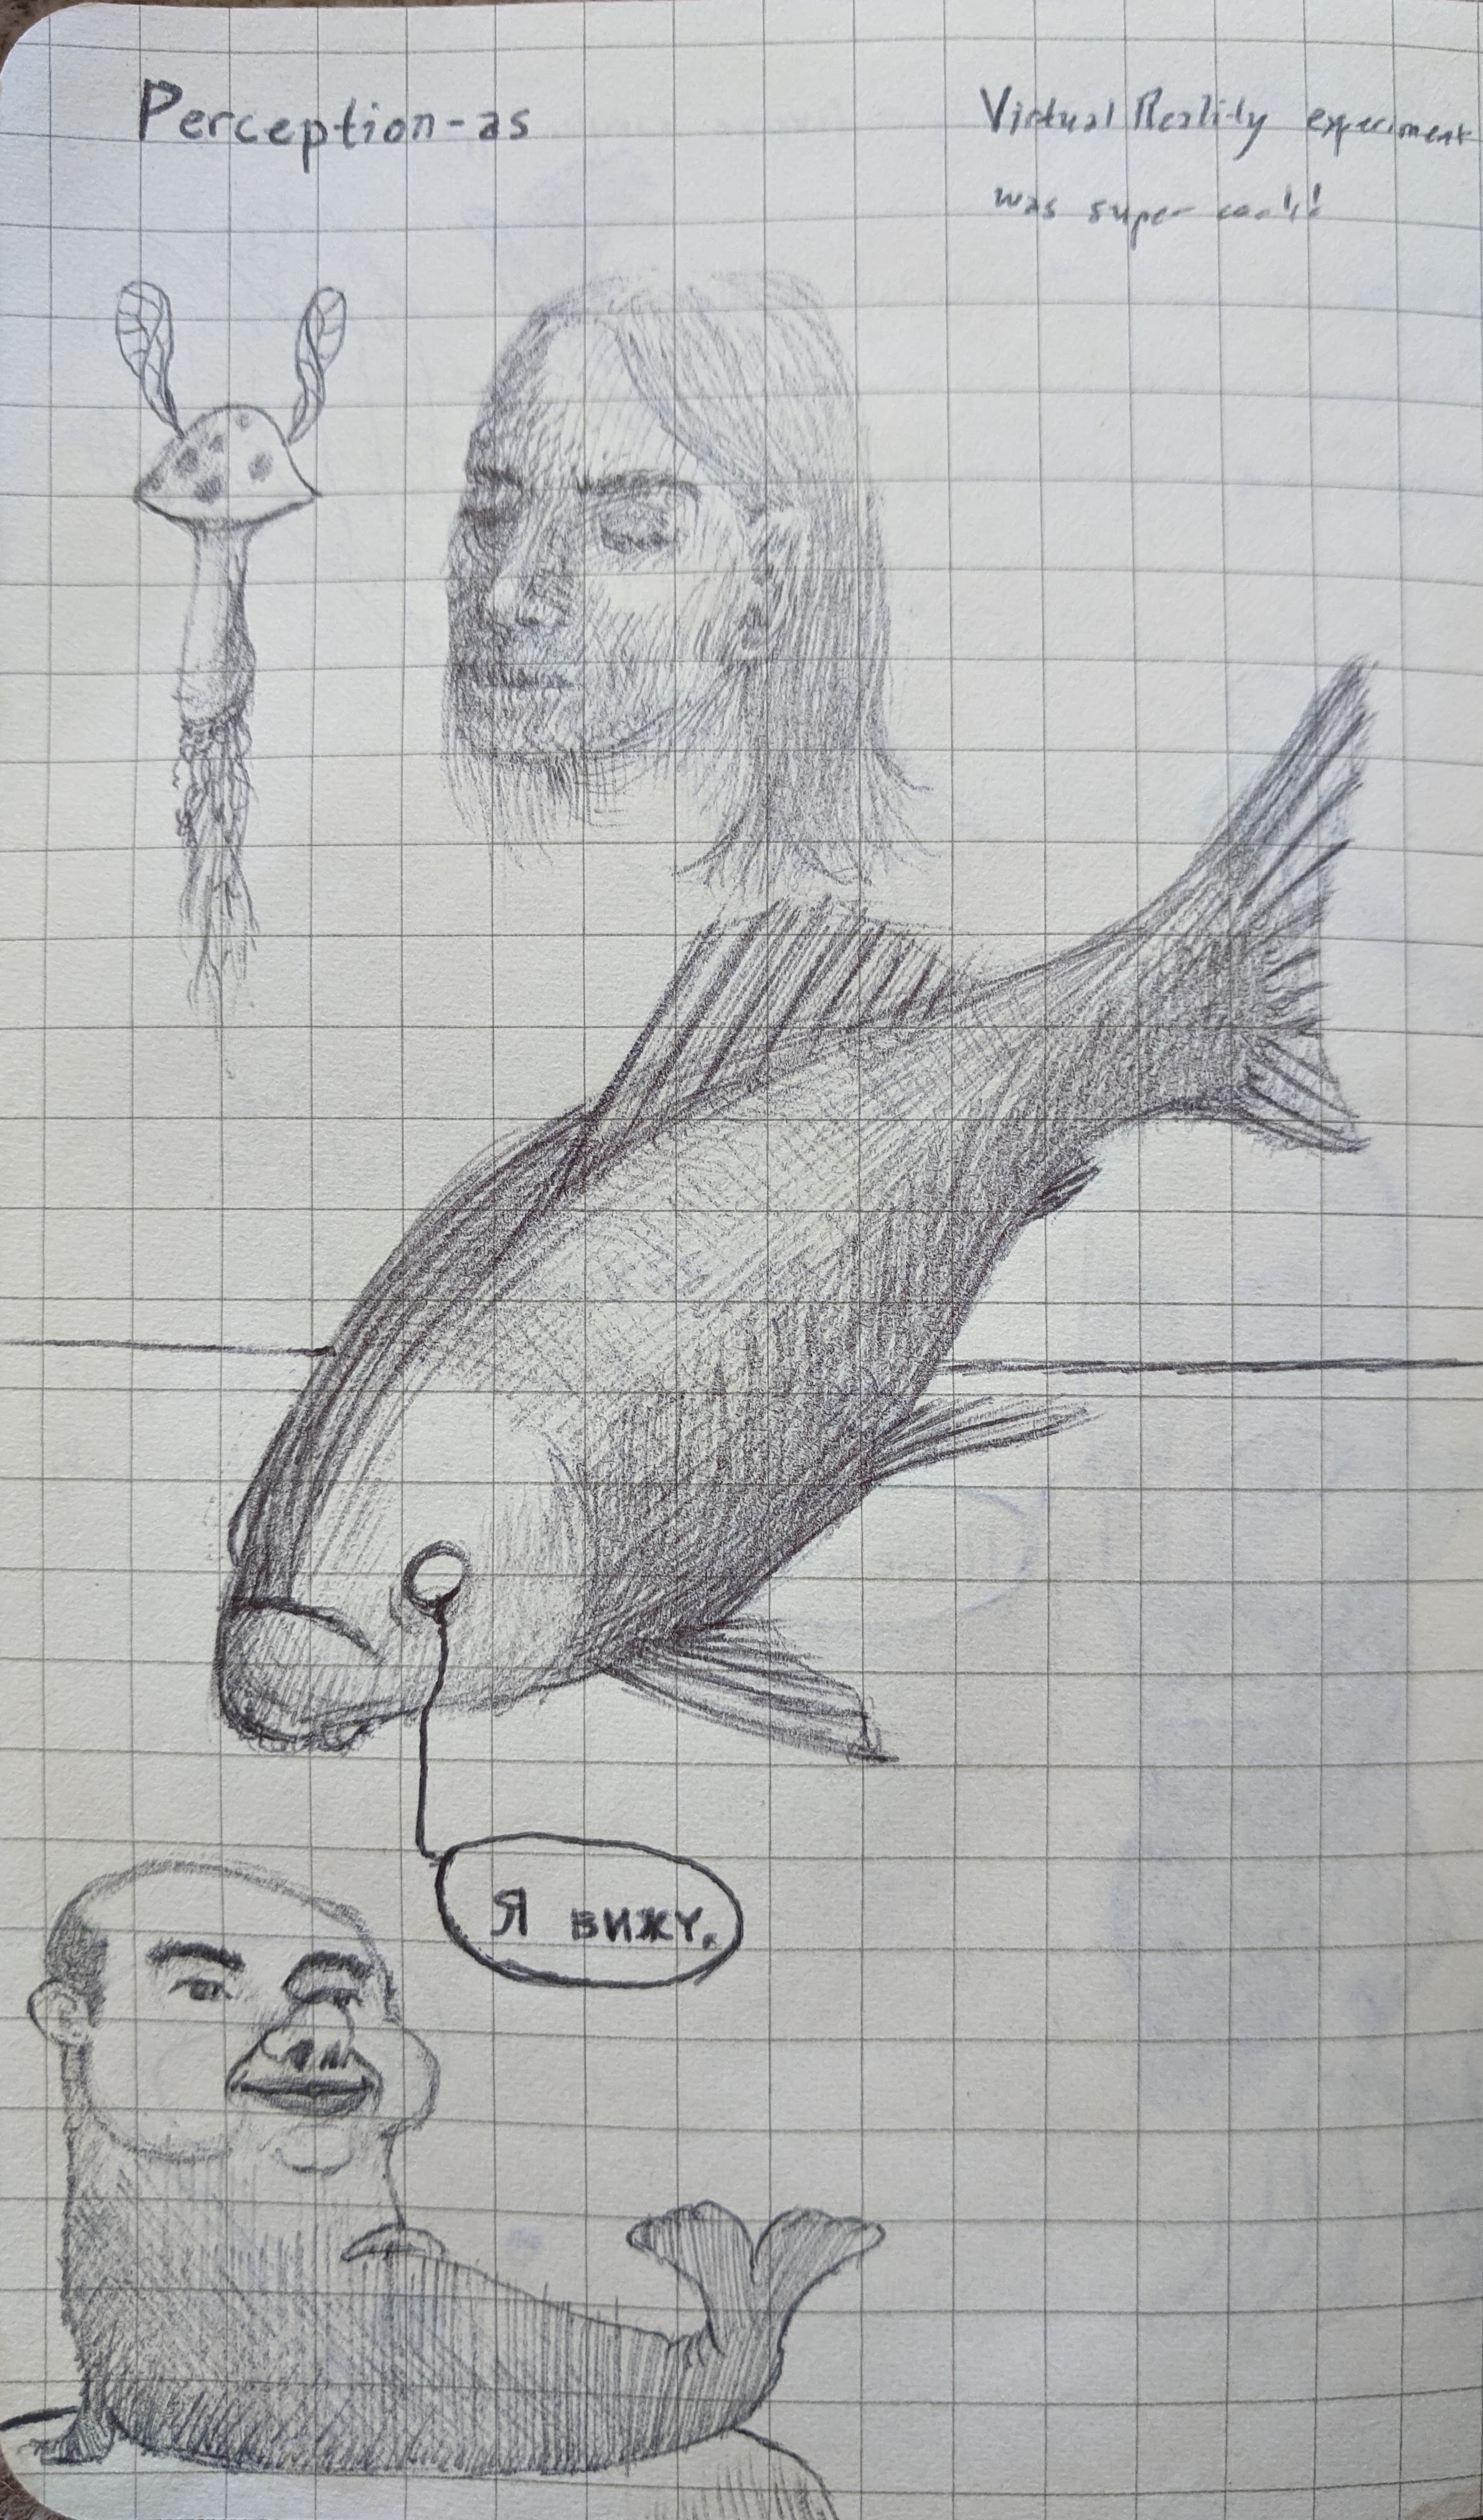 Perception-as
Virtual Reality experiment
was super cool!!
Я вижу.